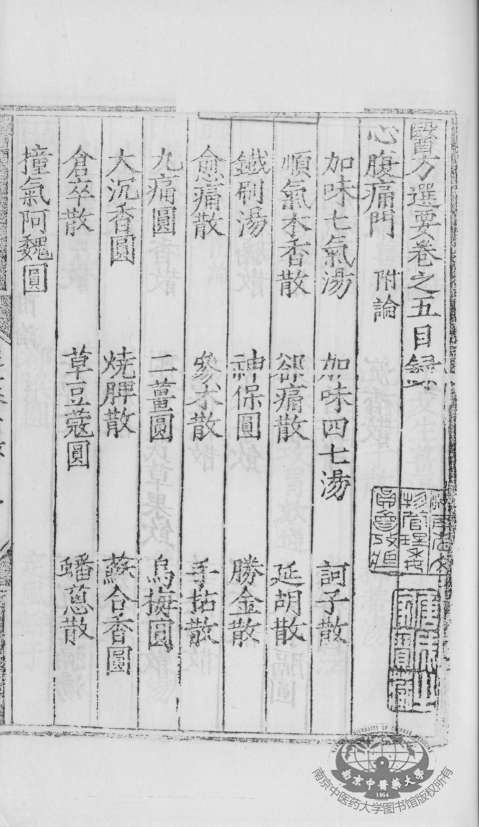 醫方選要卷之五目錄
心腹痛門 附論
加味七氣湯 加味四七湯 訶子散
順氣木香散 卻痛散 延胡散
鐵刷湯 神保圓 勝金散
愈痛散 參朮散 手拈散
九痛圓 二薑圓 烏梅圓
大沉香圓 燒脾散 蘇合香圓
倉卒散 草豆蔻圓 蟠葱散
撞氣阿魏圓
南京中醫藥大學
1954
南京中医药大学图书馆版权所有